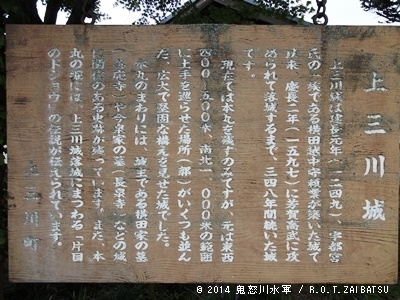 上三川城
上三川城は建長元年（一二四九）、宇都宮
氏の一族である横田越中守頼業が築いた城で
以来、慶長二年（一五九七）に芳賀高武に攻
められて落城するまで、三四八年間続いた城
です。
現在では本丸を残すのみですが、元は東西
四〇〇〜五〇〇米、南北一、〇〇〇米の範囲
に土手を巡らせた場所（郭）がいくつも並ん
だ、広大で堅固な構えを見せた城でした。
本丸のまわりには、城主である横田家の墓
（善応寺）や今泉家の墓（長泉寺）などの城
に関係のある史跡が残っています。また、本
丸の堀には、上三川城落城にまつわる「片目
のドジョウ」の伝説が伝えられています。
上三川町
© 2014 鬼怒川水軍 / R.O.T.ZAIBATSU